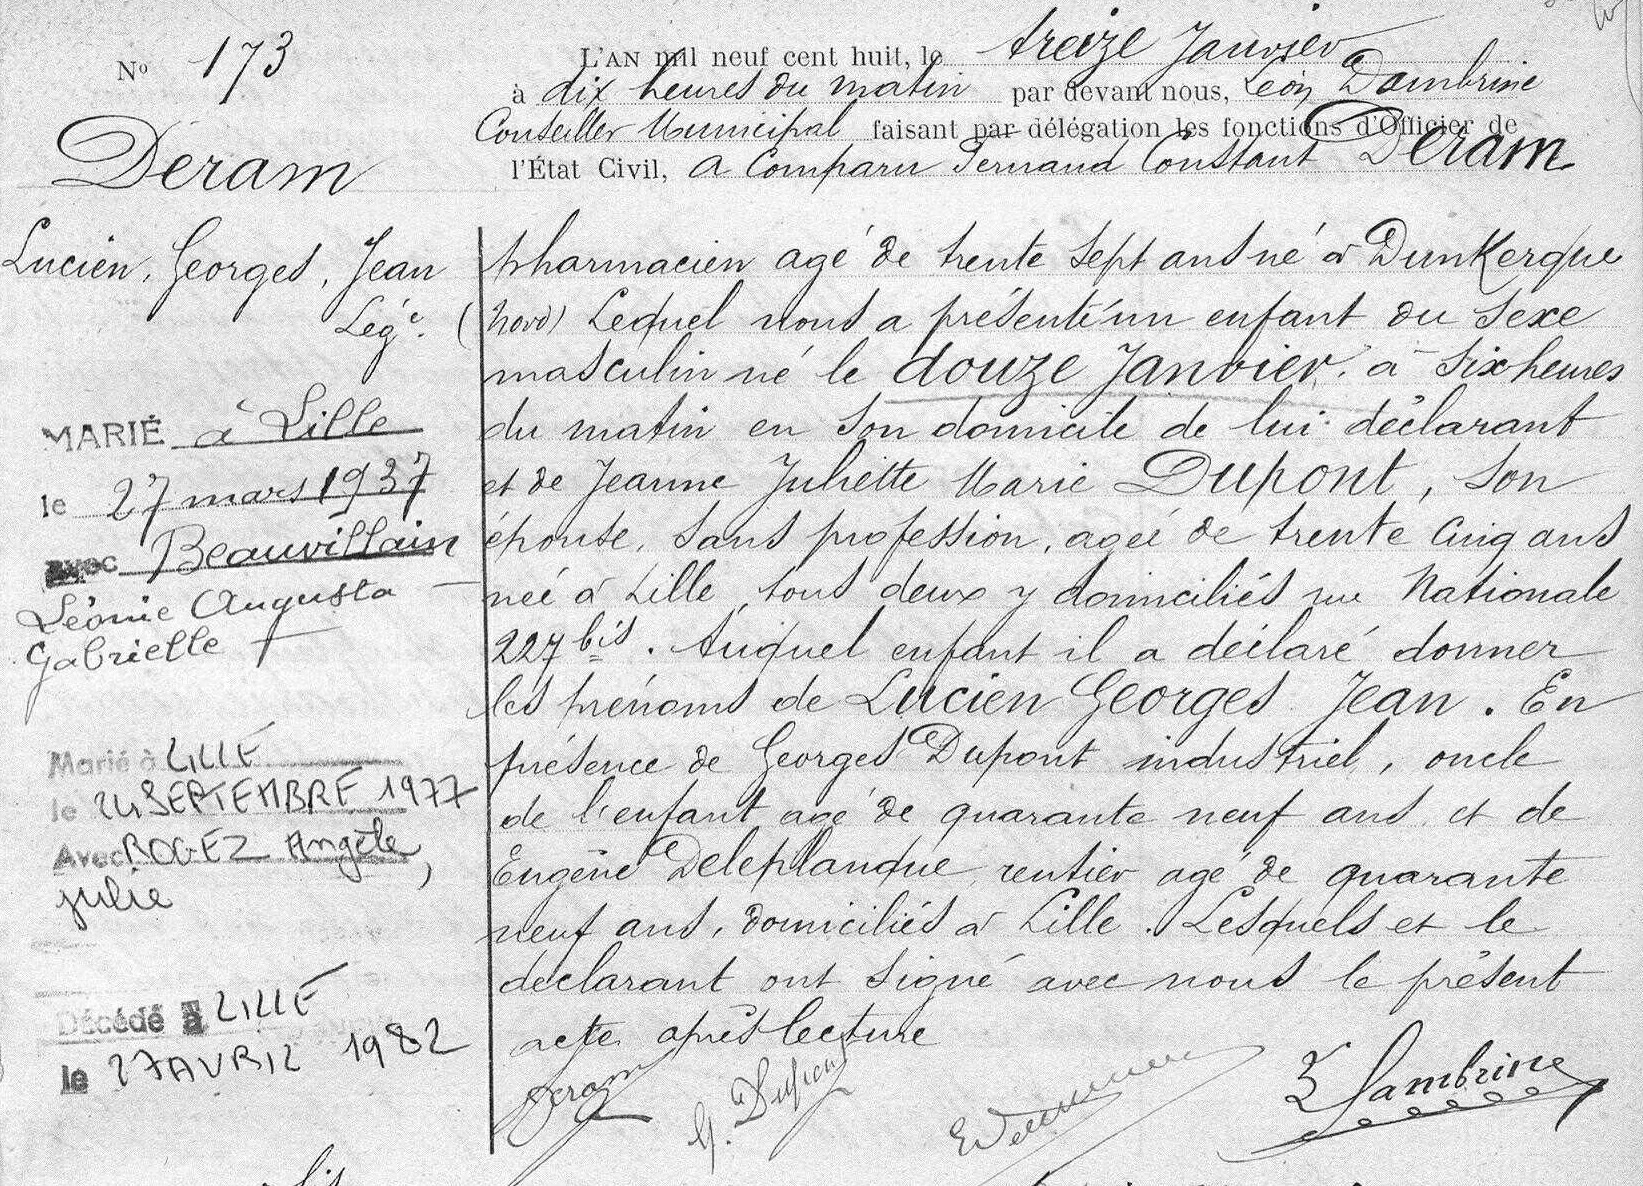 N° 173
L'AN mil neuf cent huit, le treize Janvier
à dix heures du matin par devant nous, Léon Dambrine
Conseiller Municipal faisant par délégation les fonctions d'Officier de
l'État Civil, a Comparu Fernand Constant Deram
Deram
Lucien, Georges, Jean
Lége.
pharmacien agé de trente sept ans né à Dunkerque
(Nord) Lequel nous a présenté un enfant du sexe
masculin né le douze Janvier à six heures
du matin en son domicile de lui déclarant
et de Jeanne Juliette Marie Dupont, son
épouse, sans profession, agée de trente cinq ans
née à Lille, tous deux y domiciliés rue Nationale
227 bis. Auquel enfant il a déclaré donner
les prénoms de Lucien Georges Jean. En
présence de Georges Dupont industriel, oncle
de l'enfant agé de quarante neuf ans et de
Eugène Deleplanque, rentier agé de quarante
neuf ans, domiciliés à Lille. Lesquels et le
déclarant ont signé avec nous le présent
acte après lecture
MARIÉ à Lille
le 27 mars 1937
avec Beauvillain
Léonie Augusta
Gabrielle
Marié à LILLE
le 24 SEPTEMBRE 1977
Avec ROGEZ Angèle,
julie
Décédé à LILLE
le 27 AVRIL 1982
Deram
G. Dupont
L Dambrine